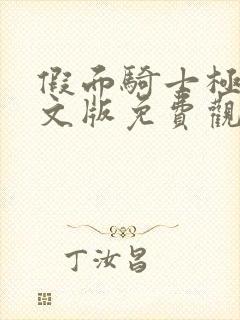 假而騎士極
文版免費觀
丁汝昌